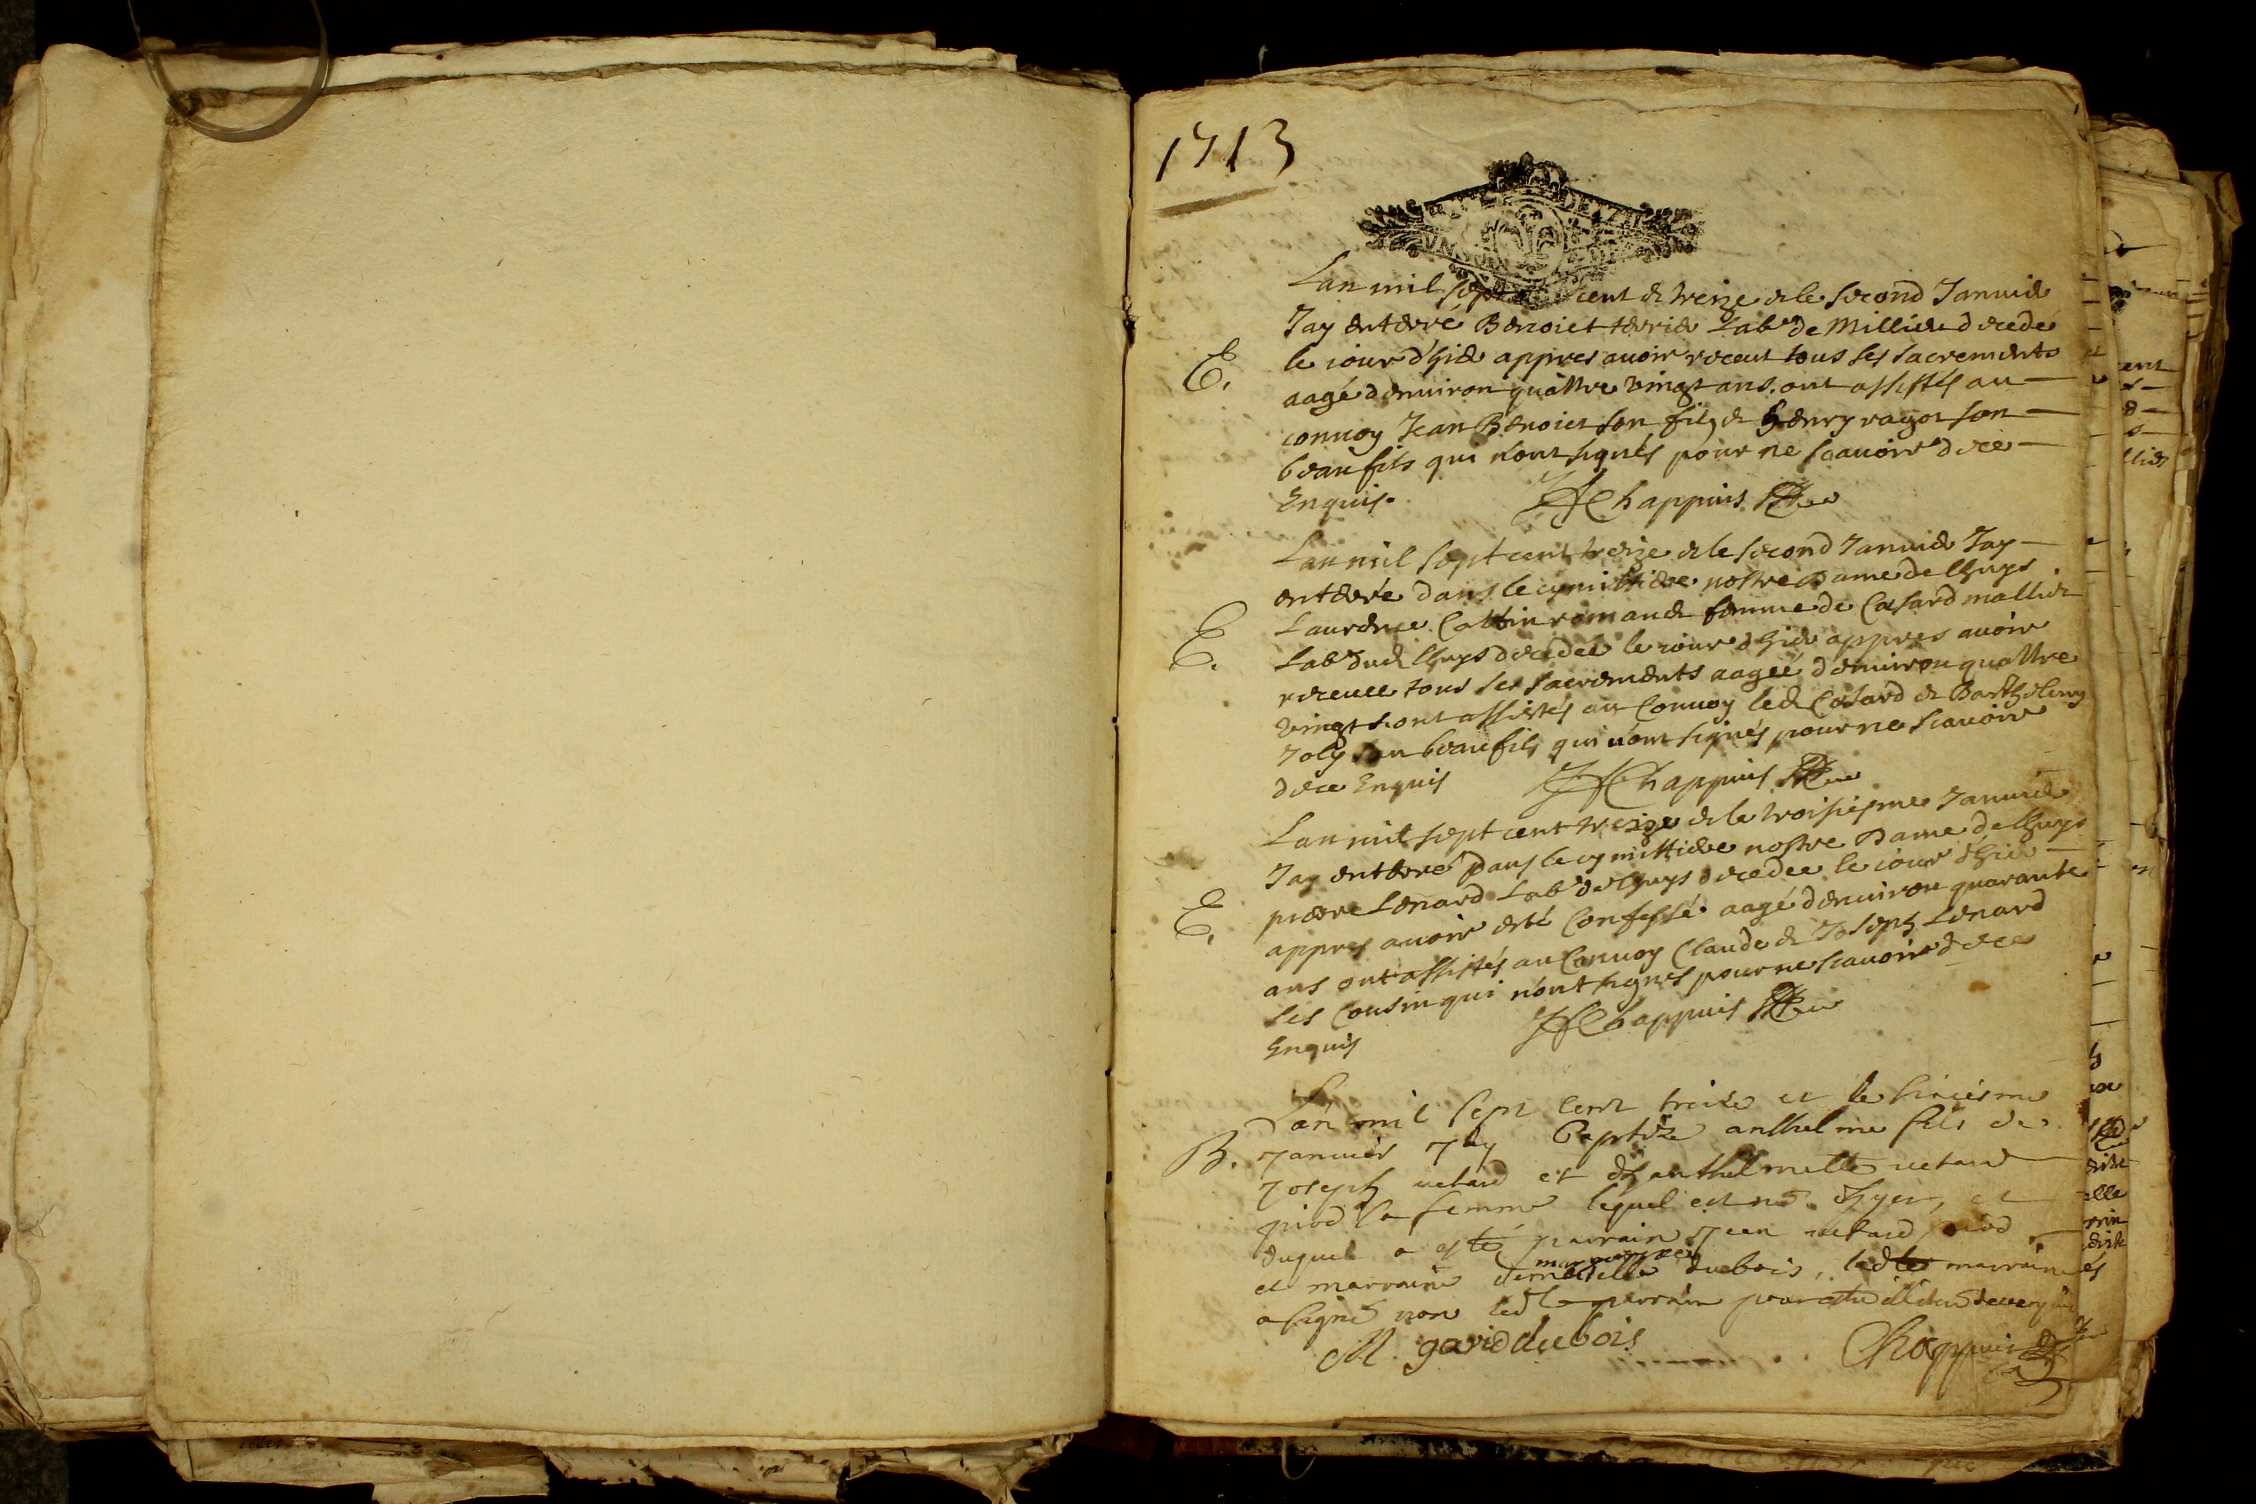 1713
Lan mil sept cent & treize & le second Januier
Jay enterré Benoict terrier Lab.r de Millieu decedé
E. le iour d'hier appres auoir receut tous ses sacrements
aagé d'enuiron quattre vingt ans. ont assistés au
conuoy Jean Benoict son fils & henry ragot son
beaufils qui nont signés pour ne scauoir de ce
Enquis. Chappuis
Lan mil sept cent treize & le second Januier Jay
enterré dans le cymittiere nostre Dame de lhuys
Laurence Cattin romand femme de Casard mallier
E. Lab.r dud lhuys decedée le iour d'hier appres auoir
receue tous ses sacrements aageé d'enuiron quattre
vingt ont assistés au Conuoy led Casard & Barthelemy
Joly son beaufils qui nont signés pour ne scauoir
de ce Enquis Chappuis
Lan mil sept cent treize & le troisiesme Januier
Jay enterré dans le cymittiere nostre Dame de lhuys
pierre Lenard Lab.r de lhuys decedée le iour d'hier
E. appres auoir esté Confessé aagé d'enuiron quarante
ans ont assistés au Conuoy Claude & Joseph Lenard
ses Cousin qui n'ont signés pour ne scauoir de ce
Enquis Chappuis
L'an mil sept cent treize et le
B. Januier Jay Baptizé anthelme fils de
Joseph et d' anthelmette
sa femme lequel est né d'hyer, et
duquel a esté parrain Jean
et marraine dubois, marraine
a signé non led parrain
M. gariod dubois Chappuis